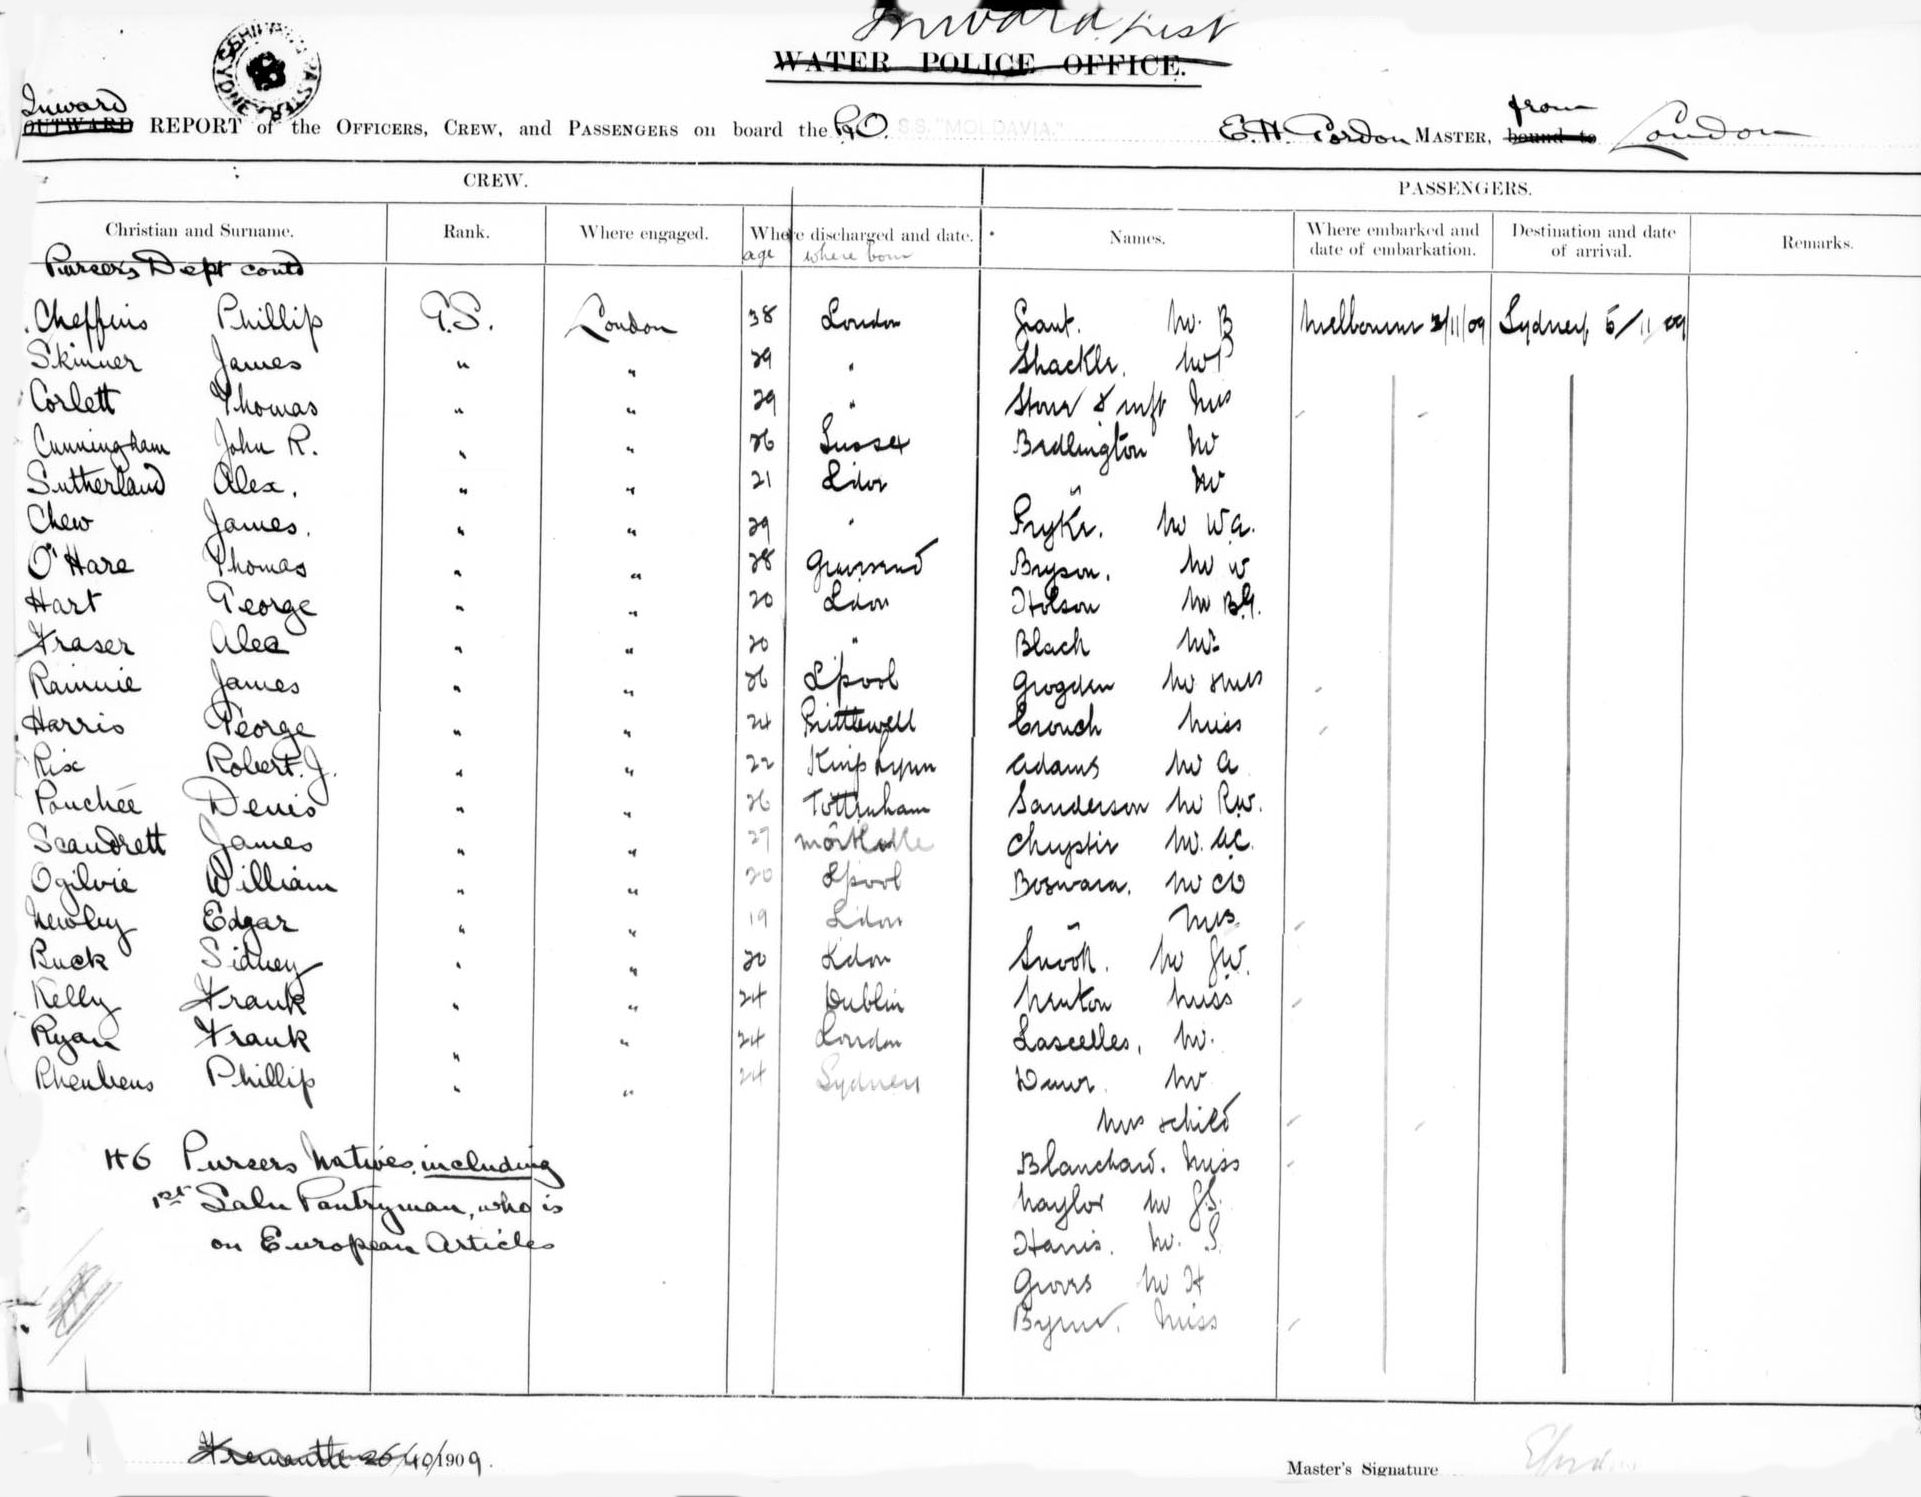 Inward List
WATER POLICE OFFICE.
Inward
OUTWARD REPORT of the OFFICERS, CREW, and PASSENGERS on board the P&O. S.S. "MOLDAVIA." E.H. Gordon MASTER, from bound to London
CREW. PASSENGERS.
Christian and Surname. Rank. Where engaged. Where discharged and date. Names. Where embarked and date of embarkation. Destination and date of arrival. Remarks.
age where born
Pursers Dept contd
Cheffins Phillip G.S. London 38 London Grant. Mr. B Melbourne 2/11/09 Sydney 5/11/09
Skinner James " " 29 " Shackle. Mr P
Corlett Thomas " " 29 " Stone & inft Mrs
Cunningham John R. " " 26 Sussex Bedlington Mr
Sutherland Alex. " " 21 Ldon " Mr
Chew James. " " 29 " Pryke. Mr W.A.
O'Hare Thomas " " 28 Gravesend Bryson. Mr W
Hart George " " 20 Ldon Holson Mr B.G.
Fraser Alec " " 20 " Black Mr
Rainnie James " " 26 L'pool Grogden Mr & Mrs
Harris George " " 24 Prittlewell Crouch Miss
Rix Robert. J. " " 22 Kings Lynn Adams Mr A
Pouchée Denis " " 26 Tottenham Sanderson Mr R.W.
Scandrett James " " 27 Mortlake Mr. A.C.
Ogilvie William " " 20 L'pool Mr
Newby Edgar " " 19 Ldon " Mrs.
Buck Sidney " " 20 Ldon Snook. Mr G.W.
Kelly Frank " " 24 Dublin Newton Miss
Ryan Frank " " 24 London Lascelles. Mr.
Rheubens Phillip " " 24 Sydney Mr
Mrs & child
46 Pursers Natives, including Blanchard. Miss
1st Saln Pantryman, who is Naylor Mr G.S.
on European Articles Harris. Mr. S.
Groves Mr H
Byrne. Miss
Fremantle 26/10/1909.
Master's Signature